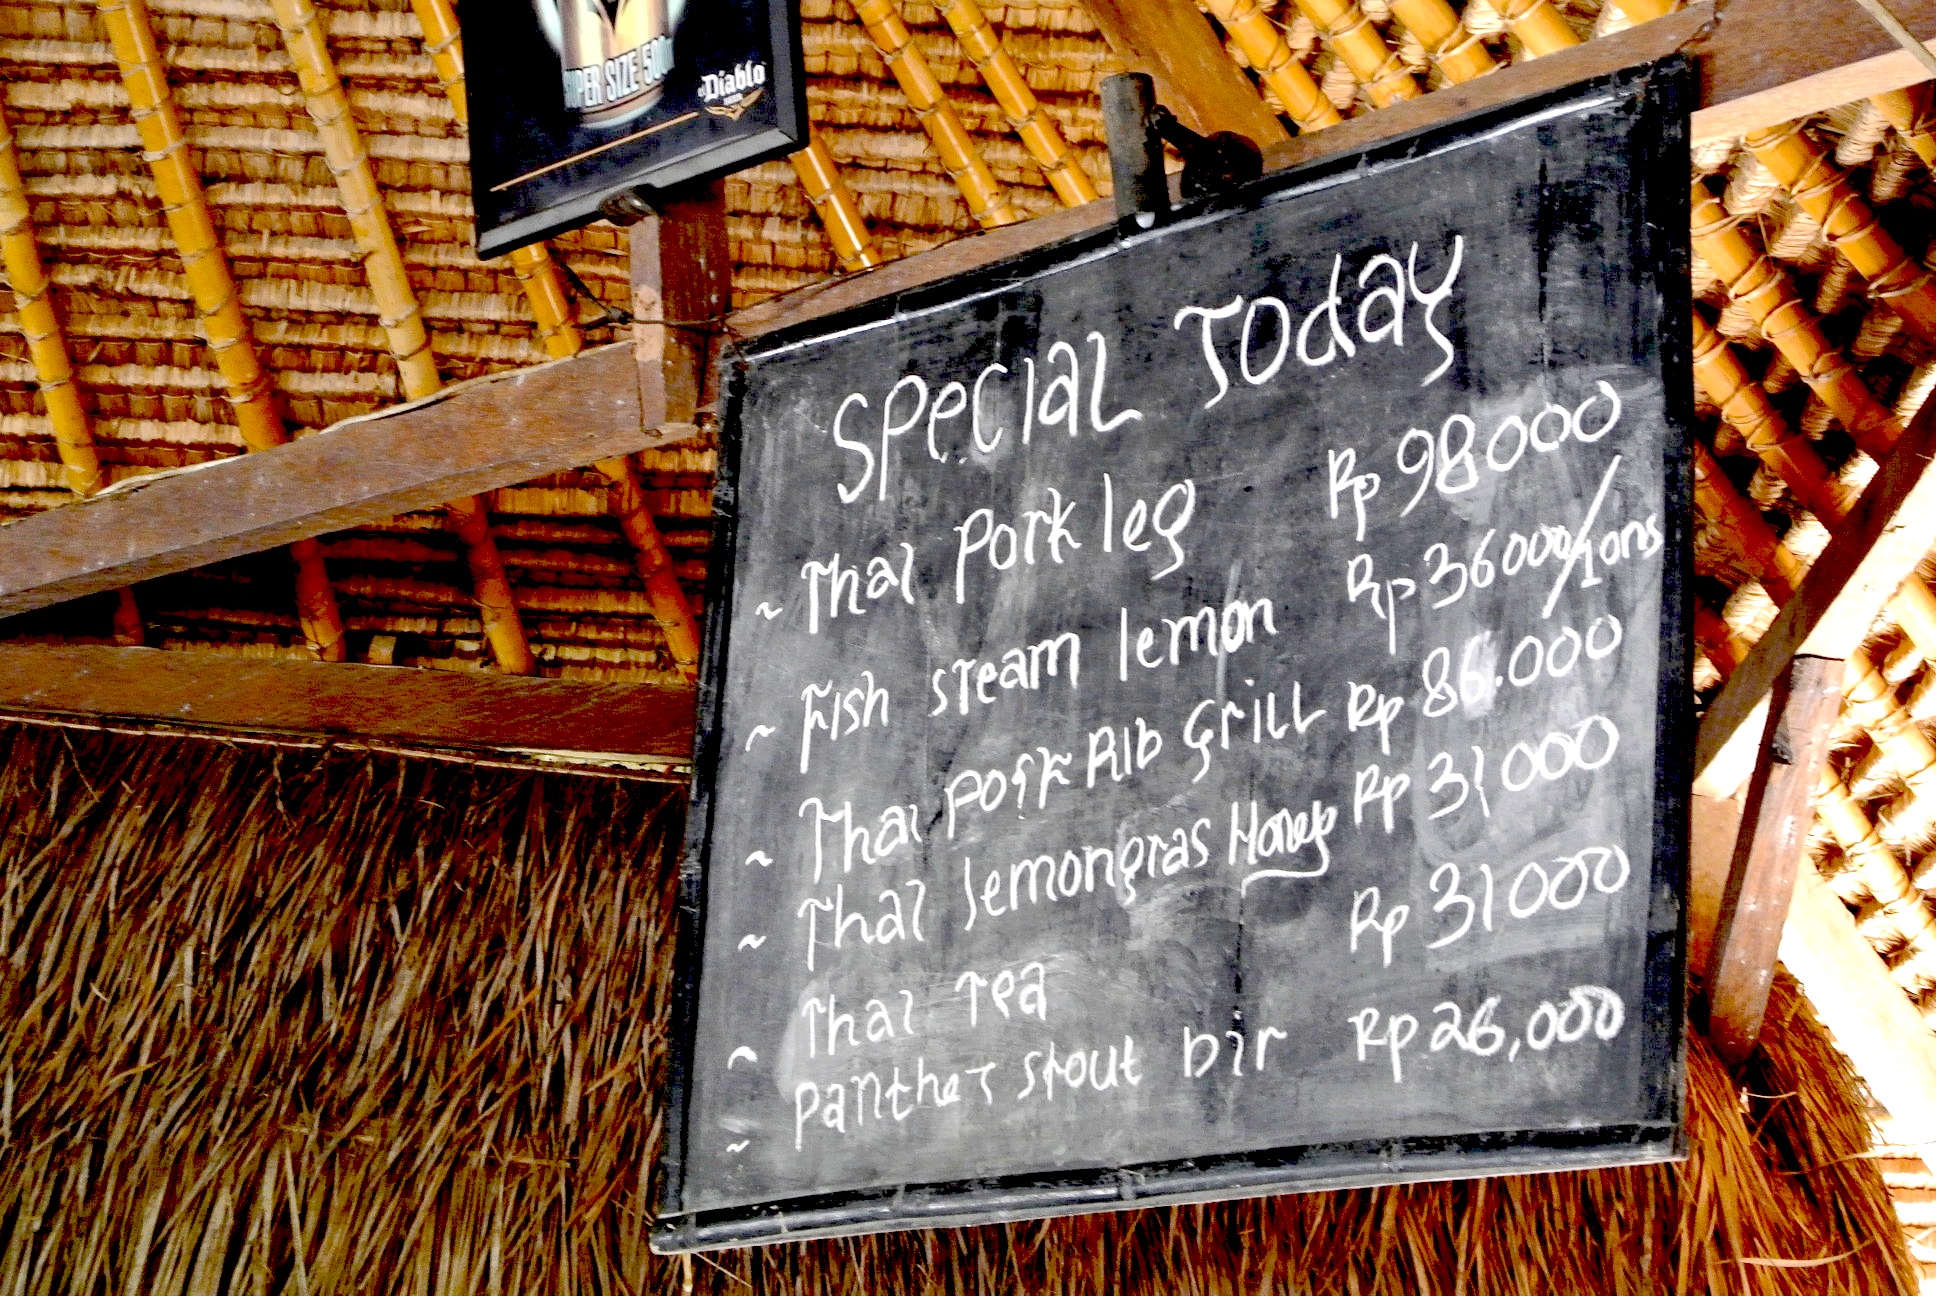 SUPER SIZE 500
el Diablo
Special Today
~ Thai Pork leg Rp 98000
~ Fish steam lemon Rp 36000/1ons
~ Thai Pork Rib Grill Rp 86.000
~ Thai lemongras Honey Rp 31000
~ Thai Tea Rp 31000
~ Panther stout bir Rp 26,000